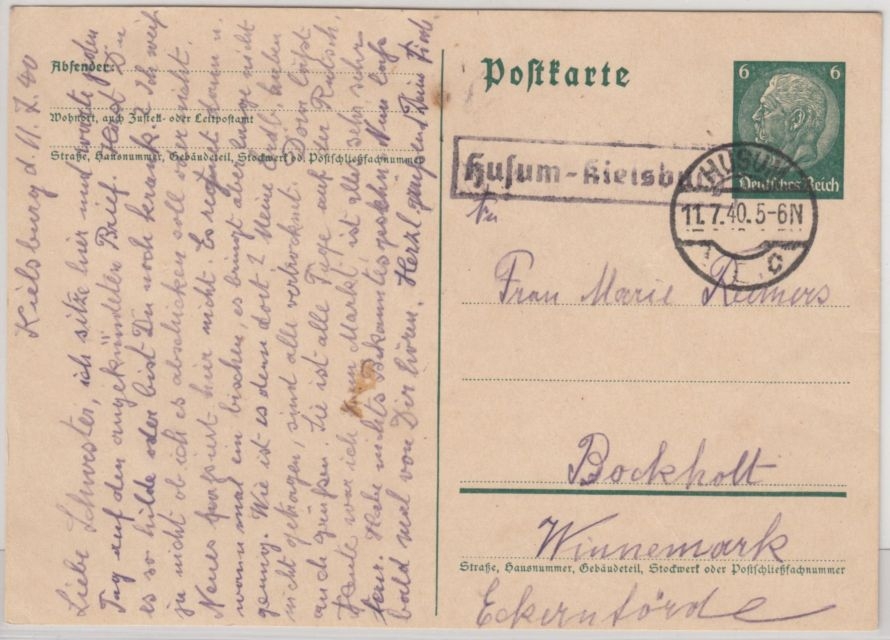 Kielsburg d. 11.7.40
Liebe Schwester, ich sitze hier und warte jeden
Tag auf den angekündeten Brief. Hast Du
es so hilde oder bist Du noch krank? Ich weiß
ja nicht ob ich es abschicken soll oder nicht.
Neues passiert hier nicht. Es regnet dann u.
wann mal ein bischen, es bringt aber lange nicht
genug. Wie ist es denn dort? Meine Erdb. haben
nicht getragen, sind alle vertrocknet. Dora läßt
auch grüßen. Sie ist alle Tage auf der
Heute war ich zum Markt, ist alles sehr sehr
teuer. Habe nichts Bekanntes gesehn. Nun laß
bald mal von Dir hören. Herzl. grüßend Deine
Absender:
Wohnort, auch Zustell- oder Leitpostamt
Straße, Hausnummer, Gebäudeteil, Stockwerk od. Postschließfachnummer
Postkarte
6 6
Deutsches Reich
Husum-Kielsbu
HUSUM
11.7.40.5-6N
c
Frau Marie Reimers
Bockholt
Winnemark
Straße, Hausnummer, Gebäudeteil, Stockwerk oder Postschließfachnummer
Eckernförde